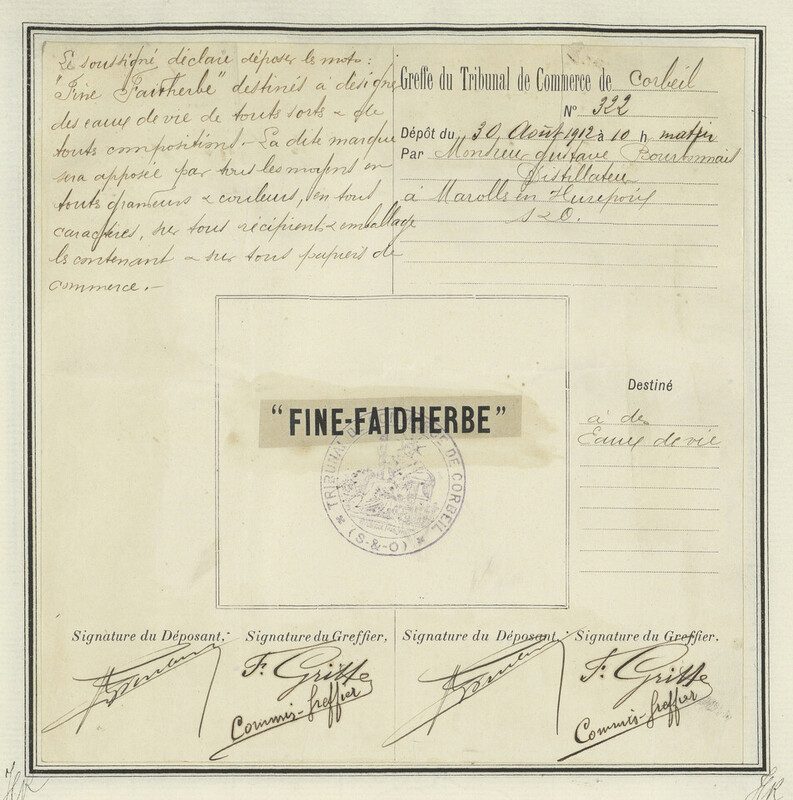 Le soussigné déclare déposer les mots :
"Fine Faidherbe" destinés à désigner
des eaux de vie de touts sorts & de
touts compositions. - La dite marque
sera apposée par tous les moyens en
touts grandeurs & couleurs, en tous
caractères, sur tous récipients & emballage
les contenant & sur tous papiers de
commerce. -
Greffe du Tribunal de Commerce de Corbeil
N° 322
Dépôt du 30 Août 1912 à 10 h. matin
Par Monsieur Gustave Bourbonnais
Distillateur
à Marolles en Hurepoix
S & O.
"FINE-FAIDHERBE"
TRIBUNAL DE COMMERCE DE CORBEIL
(S-&-O)
Destiné
à des
Eaux de vie
Signature du Déposant, Signature du Greffier, Signature du Déposant, Signature du Greffier.
F. Gritte F. Gritte
Commis-greffier Commis-greffier